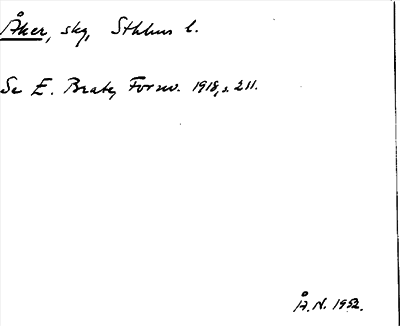 Åker, skg, Sthlms l.
Se E. Brate, Fornv. 1918, s. 211.
Å. N. 1952.